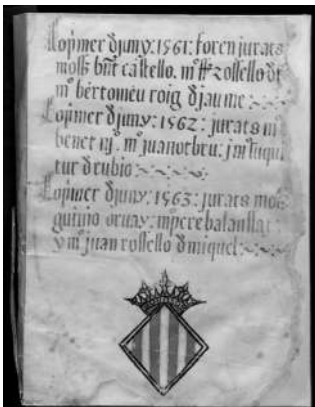 Lo pmer d juny: 1561: foren jurats
moss bnt castello. mº ff rossello d
mº bertomeu roig d jaume
Lo pmer d juny: 1562: jurats mº
benet mº juanot bru: j mº
tur d rubio
Lo pmer d juny: 1563: jurats moss
mº pere balansat
y mº juan rossello d miquel